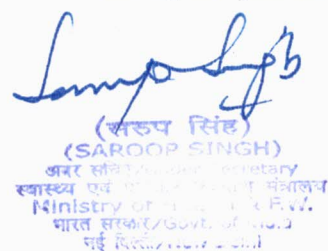 (सरुप सिंह)
(SAROOP SINGH)
अवर सचिव/Under Secretary
स्वास्थ्य एवं मंत्रालय
Ministry of F.W.
भारत सरकार/Govt. of
नई दिल्ली/New Delhi